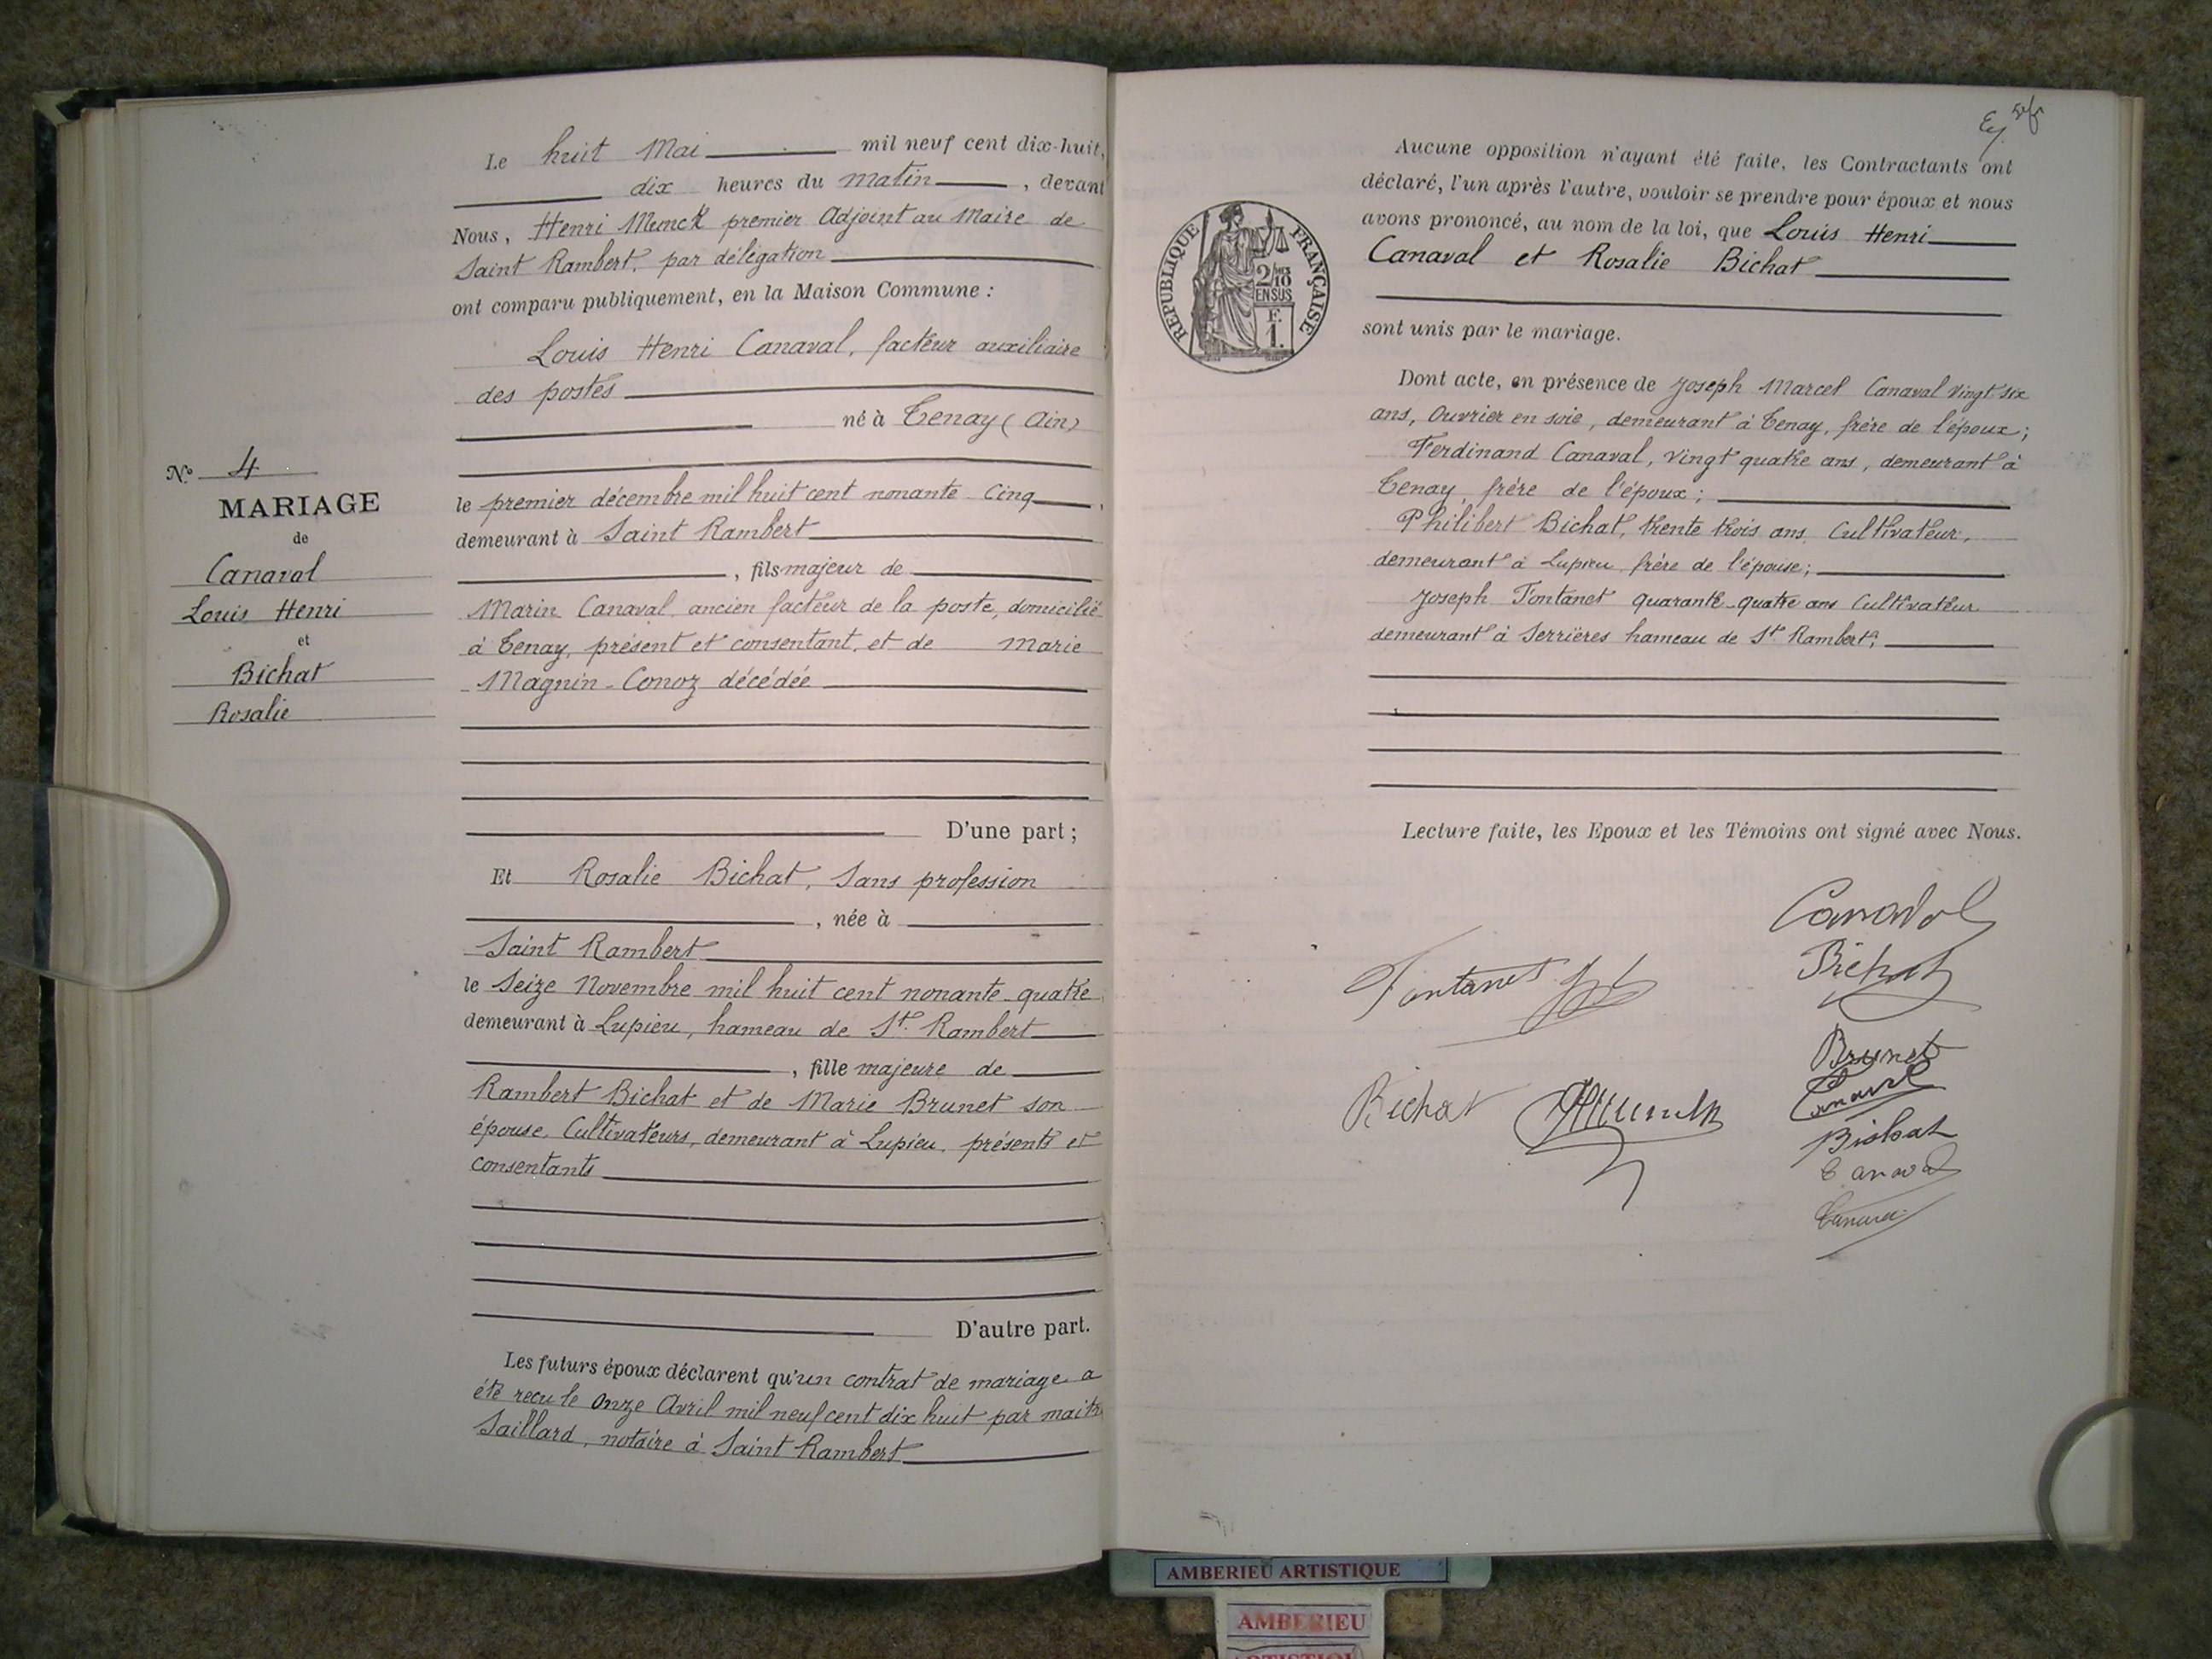 Le huit Mai mil neuf cent dix-huit,
dix heures du matin, devant
Nous, Henri Munck premier Adjoint au Maire de
Saint Rambert, par délégation
ont comparu publiquement, en la Maison Commune :
Louis Henri Canaval, facteur auxiliaire
des postes
né à Tenay (Ain)
le premier décembre mil huit cent nonante-cinq,
demeurant à Saint Rambert
, fils majeur de
Marin Canaval, ancien facteur de la poste, domicilié
à Tenay, présent et consentant, et de Marie
Magnin-Conoz décédée
D'une part ;
Et Rosalie Bichat, Sans profession
, née à
Saint Rambert
le Seize Novembre mil huit cent nonante-quatre
demeurant à Lupieu, hameau de St Rambert
, fille majeure de
Rambert Bichat et de Marie Brunet son
épouse, Cultivateurs, demeurant à Lupieu, présents et
consentants
D'autre part.
Les futurs époux déclarent qu'un contrat de mariage a
été reçu le onze Avril mil neuf cent dix huit par maitre
Saillard, notaire à Saint Rambert
N° 4
MARIAGE
de
Canaval
Louis Henri
et
Bichat
Rosalie
Aucune opposition n'ayant été faite, les Contractants ont
déclaré, l'un après l'autre, vouloir se prendre pour époux et nous
avons prononcé, au nom de la loi, que Louis Henri
Canaval et Rosalie Bichat
sont unis par le mariage.
RÉPUBLIQUE FRANÇAISE
2/10
EN SUS
F.
1.
Dont acte, en présence de Joseph Marcel Canaval vingt-six
ans, Ouvrier en soie, demeurant à Tenay, frère de l'époux ;
Ferdinand Canaval, vingt quatre ans, demeurant à
Tenay, frère de l'époux ;
Philibert Bichat, trente trois ans, Cultivateur,
demeurant à Lupieu, frère de l'épouse ;
Joseph Fontanet quarante-quatre ans Cultivateur
demeurant à Serrières hameau de St Rambert ;
Lecture faite, les Epoux et les Témoins ont signé avec Nous.
Canaval
Bichat
Fontanet
Brunet
Canaval
Bichat
Bichat
Canaval
Canaval
AMBERIEU ARTISTIQUE
AMBERIEU
ARTISTIQUE